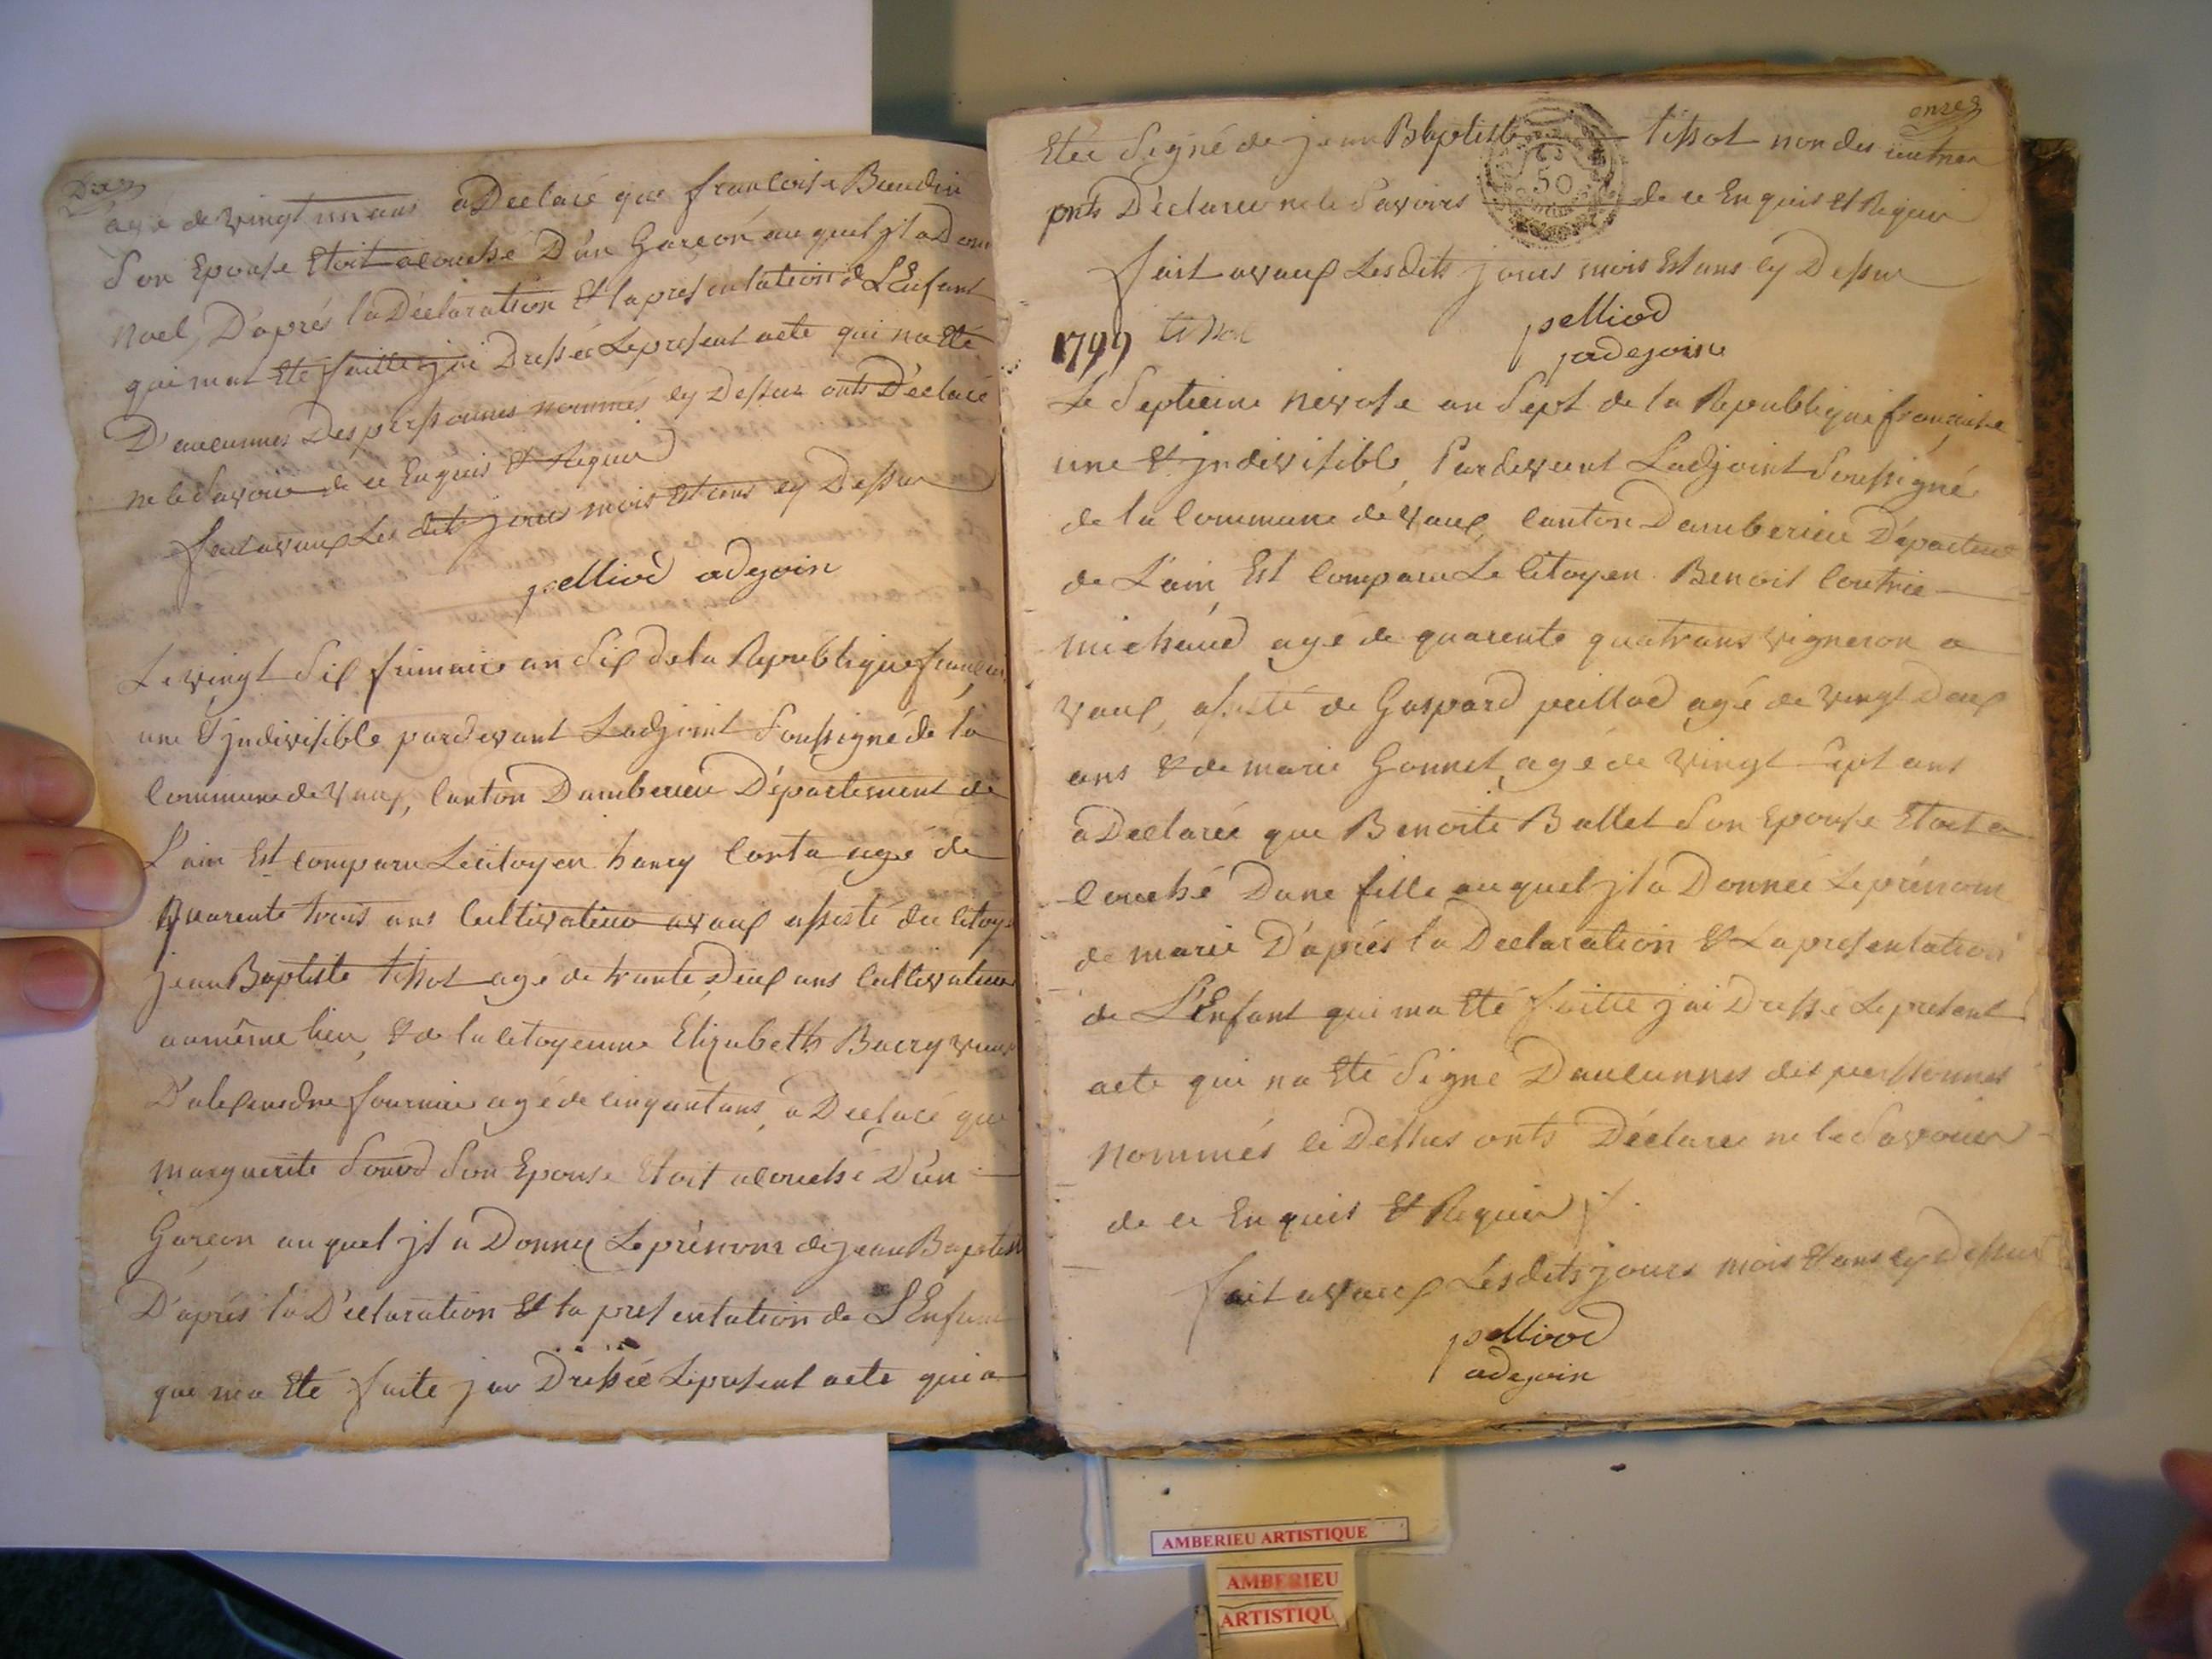 Dix
agé de vingt un ans a Declaré que francoise Baudin
son Epouse Etoit acouché D'un Garcon auquel jl a Donn
Noel, D'aprés la Déclaration Et la presentation de L'Enfant
qui mat Eté faitte jai Dressée Le present acte qui na Eté
D'aucunnes Des perssonnes nommés cy Dessus onts Déclaré
ne le Savoir de ce Enquis Et Requis
fait a vaux Les dits jour mois Est ans cy Dessus
pelliod adejoin
Le vingt Six frimaire an Six de la Republique francais
une & jndivisible pardevant Ladjoint Soussigné de la
Commune de Vaux, Canton Damberieu Département de
L'ain Est comparu Le citoyen hanry Conta agé de
Quarente trois ans Cultivateur a vaux assisté du citoy
jean Baptiste tissot agé de trante Deux ans Cultivateur
au même lieu, & de la citoyenne Elizabeth Bacry veuv
D'alexandre fournier agé de cinquant ans, a Declaré que
marguerite Sourd Son Epouse Etoit acouché D'un
Garcon auquel jl a Donné Le prénom de jean Baptist
D'aprés la D'éclaration Et la presentation de L'Enfan
qui ma Eté faite jai Dressée Le present acte qui a
onze
Etée Signé de jean Bbaptiste tissot non des autres
pnts Déclaree ne le Savoirs de ce Enquis Et Requis
50
fait a vaux Les dits jours mois Est ans cy Dessus
1799 tissot pelliod
adejoin
Le Septieme Nivose an Sept de la Republique francaise
une & jndivisible, Pardevant Ladjoint Soussigné
de la Commune de Vaux, Canton Damberieu Départem
de L'ain, Est Comparu Le Citoyen Benoit Coutrie
michaud agé de quarente quatrans vigneron a
vaux, assisté de Gaspard peillod agé de vingt Deux
ans & de marie Gonnet, agé de vingt Sept ans
a Declarée que Benoite Ballet Son Epouse Etoit a
Couché Dune fille auquel jl a Donnée Le prénom
de marie D'aprés la Declaration Et La presentation
de L'Enfant qui ma Eté faitte jai Dressé Le present
acte qui na Eté Signé Daucunnes des perssonnes
Nommés ci Dessus onts Déclaree ne le Savoir
de ce Enquis Et Requis
fait a vaux Les dits jours mois Et ans cy Dessus
pelliod
adejoin
AMBERIEU ARTISTIQUE
AMBERIEU
ARTISTIQU